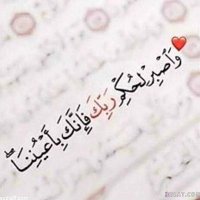 وَاصْبِرْ لِحُكْمِ رَبِّكَ فَإِنَّكَ بِأَعْيُنِنَا ۖ